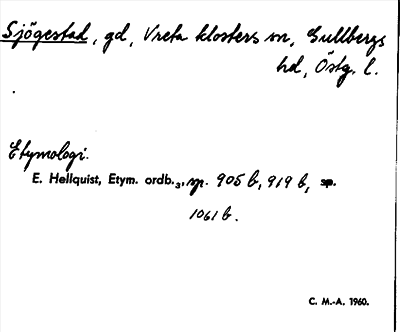 Sjögestad, gd, Vreta klosters sn, Gullbergs
hd, Östg. l.
Etymologi.
E. Hellquist, Etym. ordb.3, sp. 905 b, 919 b, sp.
1061 b.
C. M.-A. 1960.